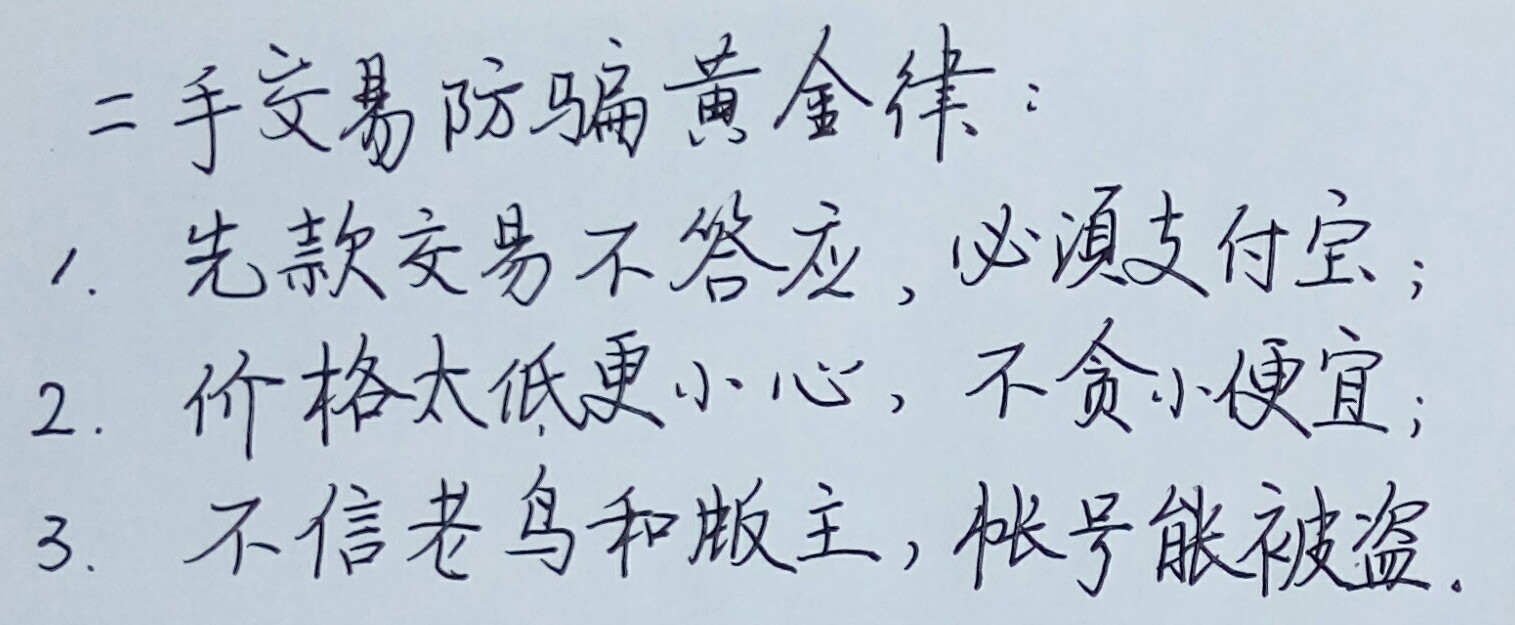 二手交易防骗黄金律:
1. 先款交易不答应,必须支付宝;
2. 价格太低更小心,不贪小便宜;
3. 不信老鸟和版主,帐号能被盗.